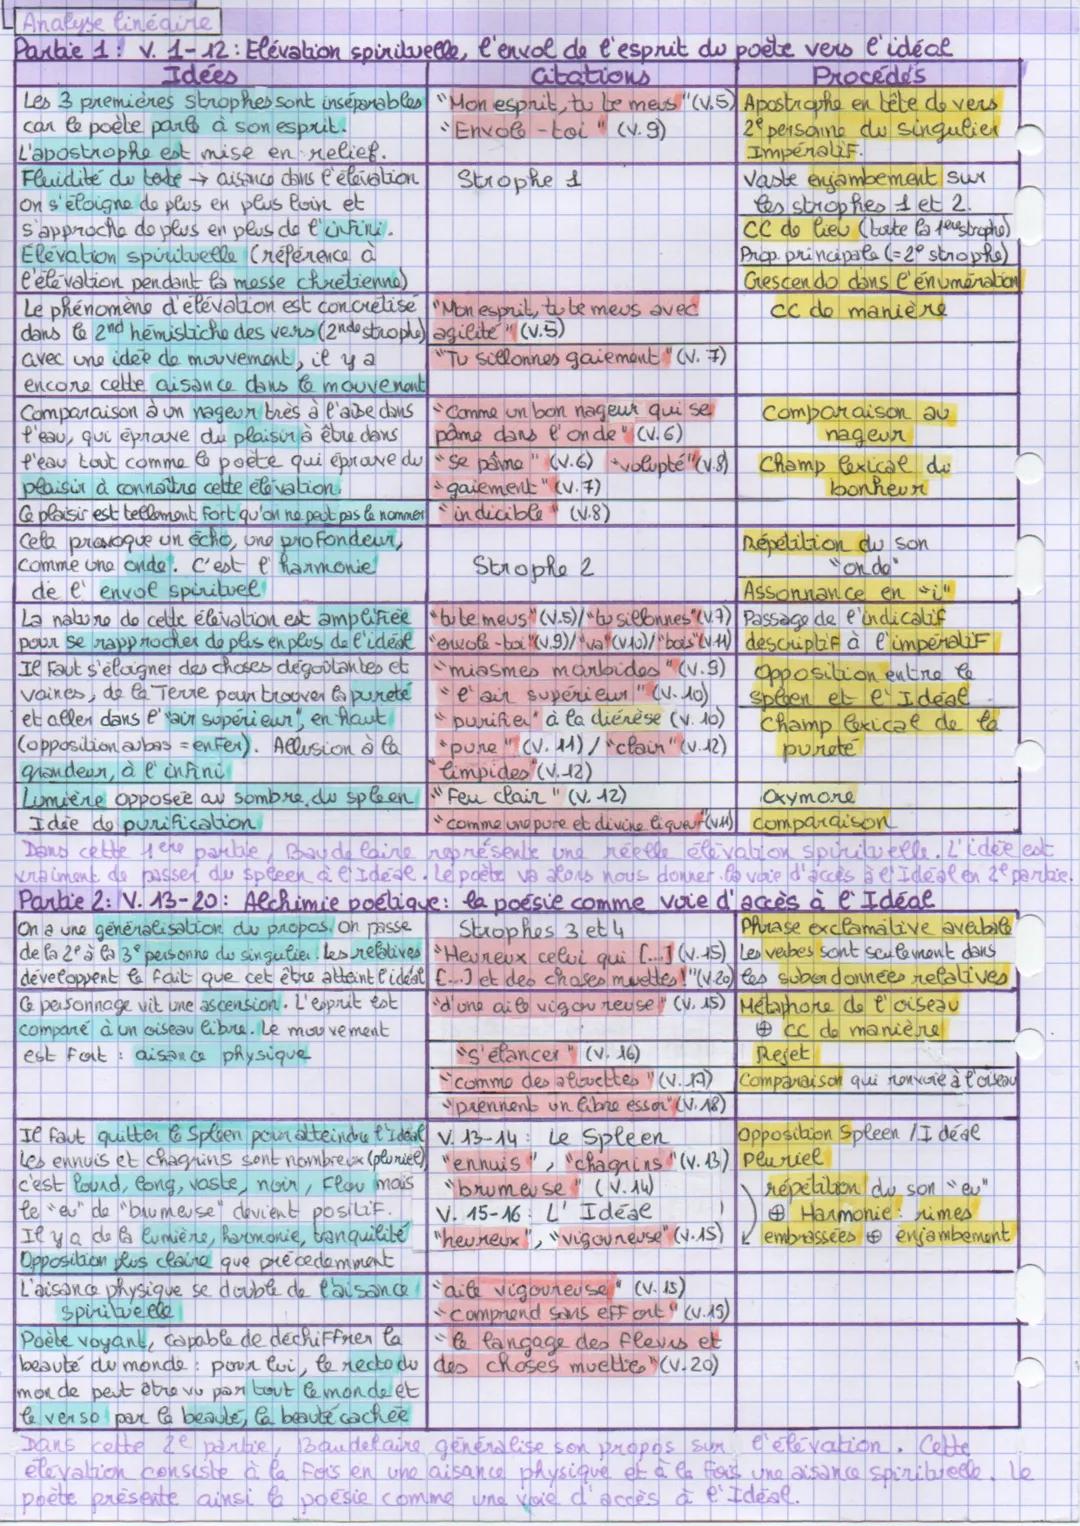 Analyse linéaire
Partie 1 : v. 1-12 : Elévation spirituelle, l'envol de l'esprit du poète vers l'idéal
Idées
Citations
Procédés
Les 3 premières strophes sont inséparables
car le poète parle à son esprit.
L'apostrophe est mise en relief.
"Mon esprit, tu te meus" (v.5)
"Envole-toi" (v.9)
Apostrophe en tête de vers
2e personne du singulier
Impératif.
Fluidité du texte → aisance dans l'élévation
on s'éloigne de plus en plus loin et
s'approche de plus en plus de l'infini.
Elévation spirituelle (référence à
l'élévation pendant la messe chrétienne)
Strophe 1
Vaste enjambement sur
les strophes 1 et 2.
CC de lieu (toute la 1ère strophe)
Prop. principale (=2e strophe)
Crescendo dans l'énumération
Le phénomène d'élévation est concrétisé
dans le 2nd hémistiche des vers (2nde strophe)
avec une idée de mouvement, il y a
encore cette aisance dans le mouvement
"Mon esprit, tu te meus avec
agilité" (v.5)
"Tu sillonnes gaiement" (v. 7)
CC de manière
Comparaison à un nageur très à l'aise dans
l'eau, qui éprouve du plaisir à être dans
l'eau tout comme le poète qui éprouve du
plaisir à connaître cette élévation.
"Comme un bon nageur qui se
pâme dans l'onde" (v.6)
"se pâme" (v.6) "volupté" (v.8)
"gaiement" (v.7)
Comparaison au
nageur
Champ lexical du
bonheur
Ce plaisir est tellement fort qu'on ne peut pas le nommer
"indicible" (v.8)
Cela provoque un écho, une profondeur,
comme une onde. C'est l'harmonie
de l'envol spirituel
Strophe 2
Répétition du son
"onde"
Assonnance en "i"
La nature de cette élévation est amplifiée
pour se rapprocher de plus en plus de l'idéal
"tu te meus" (v.5)/"tu sillonnes" (v.7)
"envole-toi" (v.9)/"va" (v.10)/"bois" (v.11)
Passage de l'indicatif
descriptif à l'impératif
Il faut s'éloigner des choses dégoûtantes et
vaines, de la Terre pour trouver la pureté
et aller dans l'"air supérieur", en haut
(opposition au bas = enfer). Allusion à la
grandeur, à l'infini
"miasmes morbides" (v.9)
"l'air supérieur" (v.10)
"purifier" à la diérèse (v. 10)
"pure" (v. 11) / "clair" (v.12)
"limpides" (v.12)
Opposition entre le
spleen et l'Idéal
Champ lexical de la
pureté
Lumière opposée au sombre du spleen
"Feu clair" (v. 12)
Oxymore
Idée de purification
"comme une pure et divine liqueur" (v.11)
comparaison
Dans cette 1ère partie, Baudelaire représente une réelle élévation spirituelle. L'idée est
vraiment de passer du spleen à l'Idéal. Le poète va alors nous donner la voie d'accès à l'Idéal en 2e partie.
Partie 2 : V. 13-20 : Alchimie poétique : la poésie comme voie d'accès à l'Idéal
On a une généralisation du propos. On passe
de la 2e à la 3e personne du singulier. Les relatives
développent le fait que cet être atteint l'idéal
Strophes 3 et 4
"Heureux celui qui [...] (v.15)
[...] et des choses muettes !" (v.20)
Phrase exclamative averbale
Les verbes sont seulement dans
les subordonnées relatives
Ce personnage vit une ascension. L'esprit est
comparé à un oiseau libre. Le mouvement
est fort : aisance physique
"d'une aile vigoureuse" (v. 15)
"S'élancer" (v. 16)
"comme des alouettes" (v.17)
"prennent un libre essor" (v.18)
Métaphore de l'oiseau
⊕ CC de manière
Rejet
Comparaison qui renvoie à l'oiseau
Il faut quitter le Spleen pour atteindre l'Idéal
Les ennuis et chagrins sont nombreux (pluriel)
c'est lourd, long, vaste, noir, flou mais
le "eu" de "brumeuse" devient positif.
Il y a de la lumière, harmonie, tranquilité
Opposition plus claire que précédemment
V. 13-14 : Le Spleen
"ennuis", "chagrins" (v.13)
"brumeuse" (v.14)
V. 15-16 : L'Idéal
"heureux", "vigoureuse" (v.15)
Opposition Spleen / Idéal
Pluriel
répétition du son "eu"
⊕ Harmonie : rimes
embrassées ⊕ enjambement
L'aisance physique se double de l'aisance
spirituelle
"aile vigoureuse" (v. 15)
"Comprend sans effort" (v.19)
Poète voyant, capable de déchiffrer la
beauté du monde : pour lui, le recto du
monde peut être vu par tout le monde et
le verso par la beauté, la beauté cachée
"le langage des fleurs et
des choses muettes" (v.20)
Dans cette 2e partie, Baudelaire généralise son propos sur l'élévation. Cette
élévation consiste à la fois en une aisance physique et à la fois une aisance spirituelle. Le
poète présente ainsi la poésie comme une voie d'accès à l'Idéal.